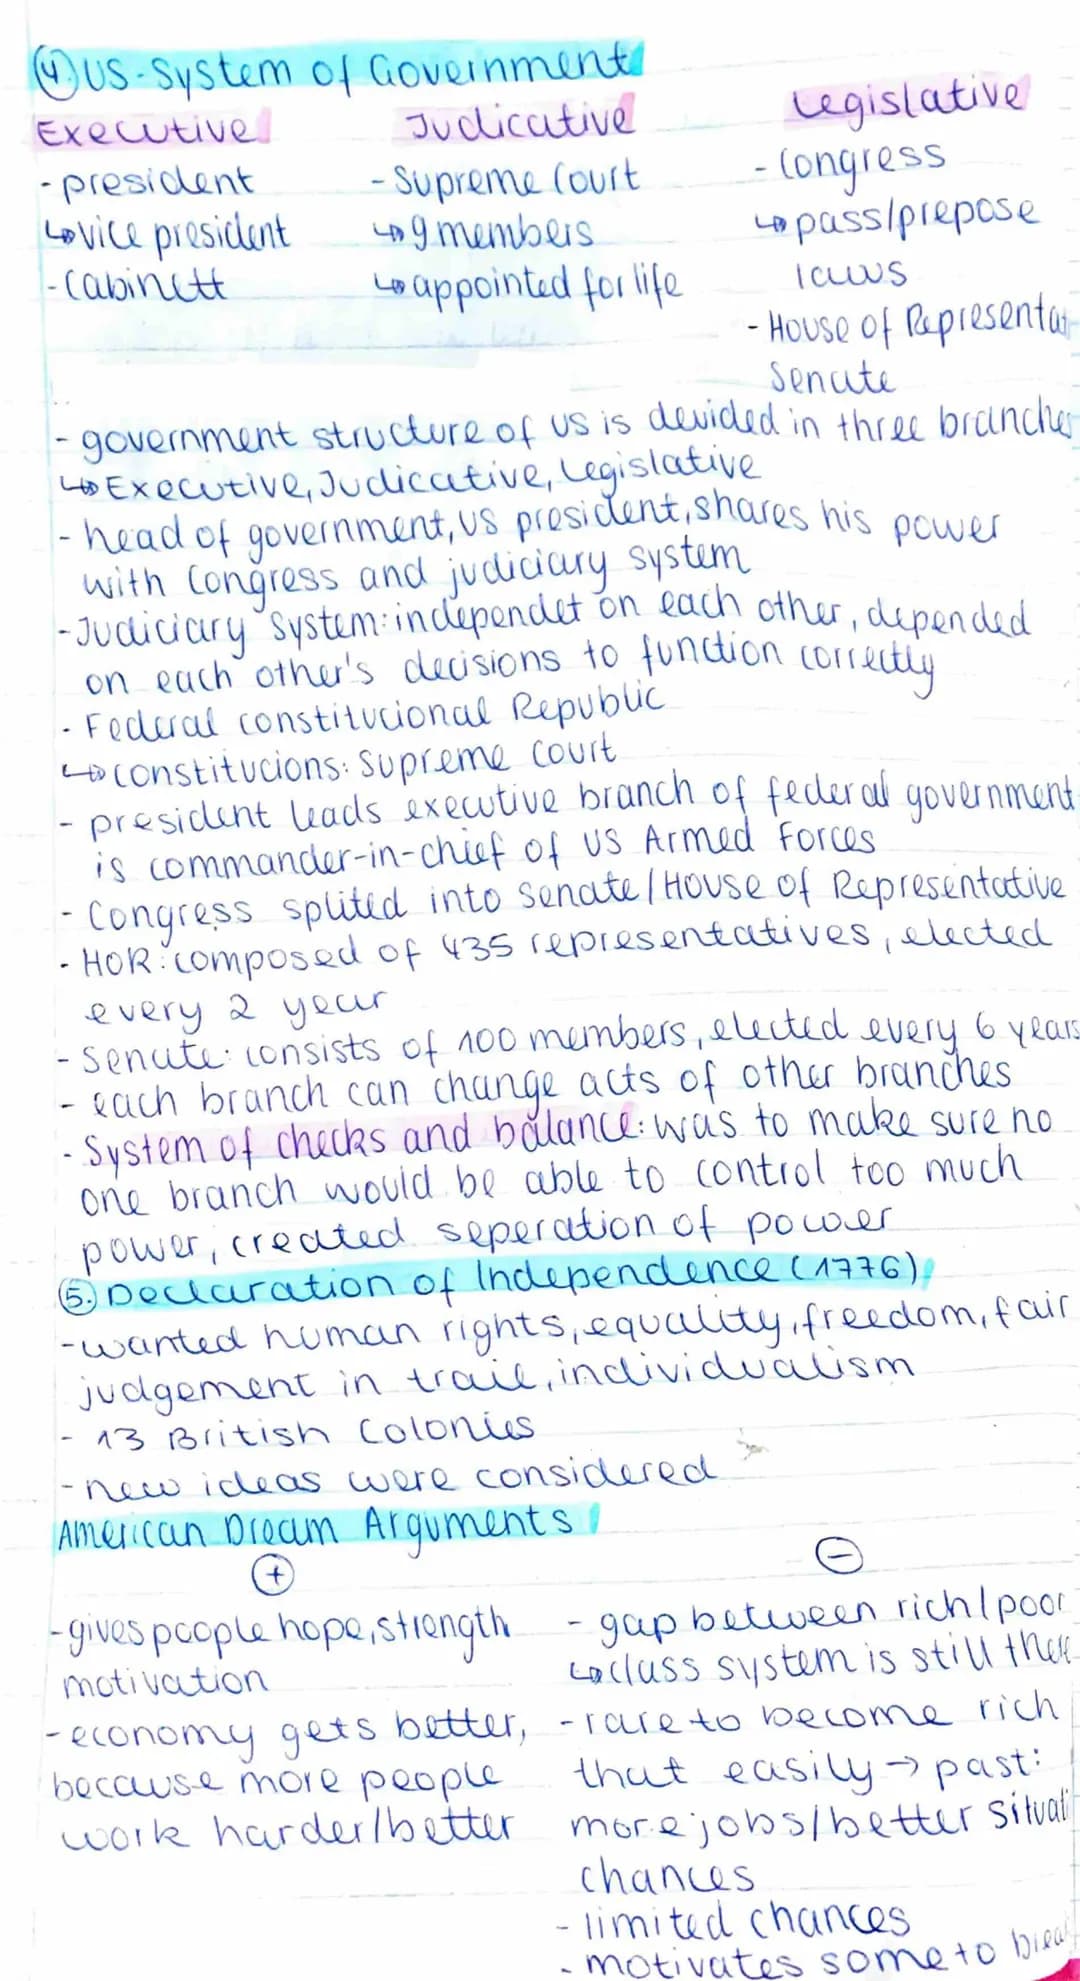 4. US-System of Government
Executive Judicative Legislative
- president - Supreme Court - Congress
↳ vice president ↳ 9 members ↳ pass/prepose
- Cabinett ↳ appointed for life laws
- House of Representat
Senate
- government structure of US is devided in three branches
↳ Executive, Judicative, Legislative
- head of government, US president, shares his power
with Congress and judiciary system
- Judiciary System: independet on each other, depended
on each other's decisions to function correctly
- Federal constitucional Republic
↳ constitucions: Supreme Court
- president leads executive branch of federal government
is commander-in-chief of US Armed Forces
- Congress splited into Senate/House of Representative
- HOR: composed of 435 representatives, elected
every 2 year
- Senate: consists of 100 members, elected every 6 years
- each branch can change acts of other branches
- System of checks and balance: was to make sure no
one branch would be able to control too much
power, created seperation of power
5. Declaration of Independence (1776)
- wanted human rights, equality, freedom, fair
judgement in trail, individualism
- 13 British Colonies
- new ideas were considered
American Dream Arguments
+ -
- gives people hope, strength - gap between rich/poor
motivation ↳ class system is still there
- economy gets better, - rare to become rich
because more people that easily → past:
work harder/better more jobs/better situati
chances
- limited chances
- motivates some to